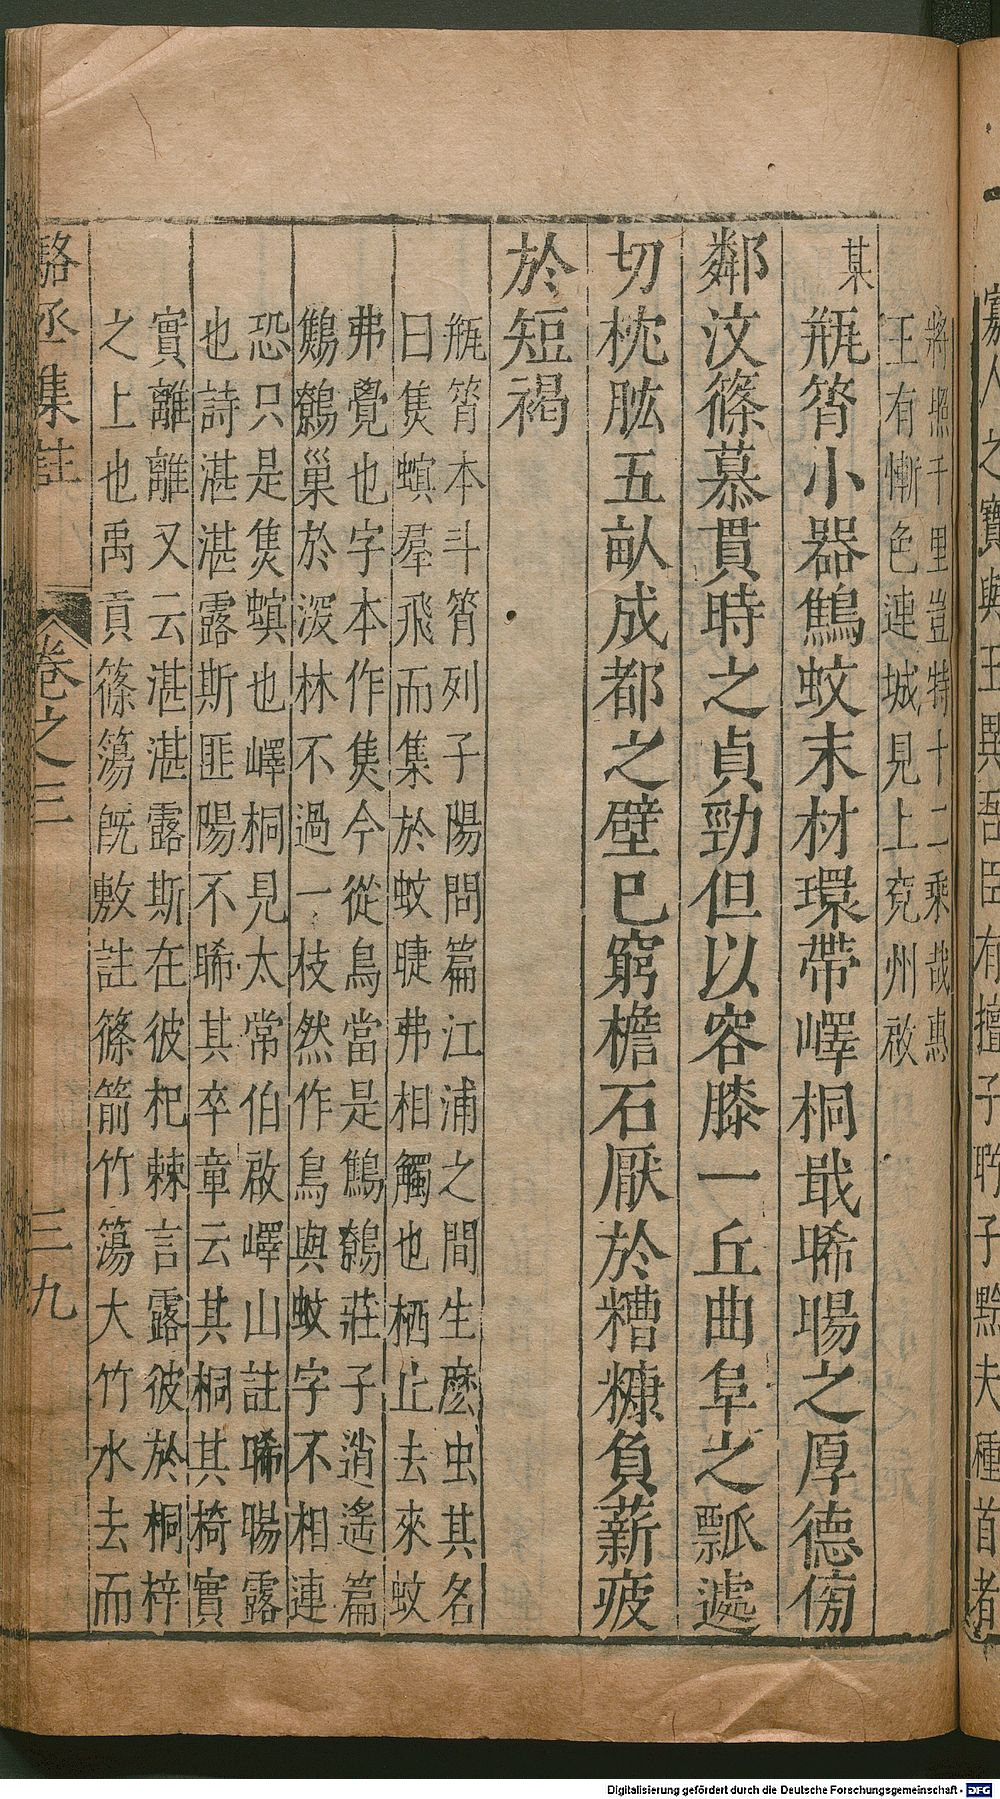 將照千里豈特十二乘哉惠
王有慚色連城見上兖州啟
某
瓶筲小器鷦蚊末材環帶嶧桐戢晞暘之厚德傍
鄰汶篠慕貫時之貞勁但以容膝一丘曲阜之瓢遽
切枕肱五畝成都之壁已窮檐石厭於糟糠負薪疲
於短褐
瓶筲本斗筲列子陽問篇江浦之間生麽虫其名
曰隻螟羣飛而集於蚊睫弗相觸也栖止去來蚊
弗覺也字本作焦今從鳥當是鷦鷯莊子逍遙篇
鷦鷯巢於深林不過一枝然作鳥與蚊字不相連
恐只是焦螟也嶧桐見太常伯啟嶧山註晞暘露
也詩湛湛露斯匪陽不晞其卒章云其桐其椅實
實離離又云湛湛露斯在彼杞棘言露彼於桐梓
之上也禹貢篠簜既敷註篠箭竹簜大竹水去而
駱丞集註
卷之三
三九
Digitalisierung gefördert durch die Deutsche Forschungsgemeinschaft - DFG